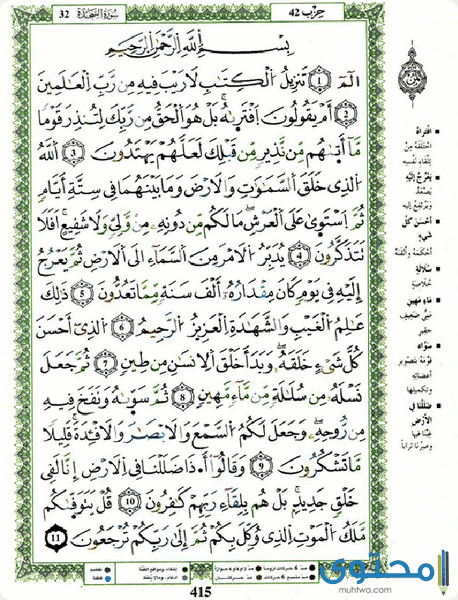 32 سُورَةُ السَّجْدَة
حزب 42
بِسْمِ اللَّهِ الرَّحْمَنِ الرَّحِيمِ
أَلَمِّ 1 تَنزِيلُ الْكِتَابِ لَا رَيْبَ فِيهِ مِن رَّبِّ الْعَالَمِينَ
2 أَمْ يَقُولُونَ اَفْتَرَاهُ بَلْ هُوَ الْحَقُّ مِن رَّبِّكَ لِتُنذِرَ قَوْماً
مَّآ أَتَيٰهُم مِّن نَّذِيرٍ مِّن قَبْلِكَ لَعَلَّهُمْ يَهْتَدُونَ 3 اَللَّهُ
الَّذِي خَلَقَ السَّمَٰوَٰتِ وَالَارْضَ وَمَا بَيْنَهُمَا فِي سِتَّةِ أَيَّامٍ
ثُمَّ اسْتَوَىٰ عَلَى الْعَرْشِ مَا لَكُم مِّن دُونِهِ مِنْ وَّلِيٍّ وَلَا شَفِيعٍ اَفَلَا
تَتَذَكَّرُونَ 4 يُدَبِّرُ الَامْرَ مِنَ السَّمَآءِ إِلَى الَارْضِ ثُمَّ يَعْرُجُ
إِلَيْهِ فِي يَوْمٍ كَانَ مِقْدَارُهُ أَلْفَ سَنَةٍ مِّمَّا تَعُدُّونَ 5 ذَٰلِكَ
عَالِمُ الْغَيْبِ وَالشَّهَادَةِ الْعَزِيزُ الرَّحِيمُ 6 الَّذِي أَحْسَنَ
كُلَّ شَيْءٍ خَلَقَهُ وَبَدَأَ خَلْقَ الِانسَانِ مِن طِينٍ 7 ثُمَّ جَعَلَ
نَسْلَهُ مِن سُلَالَةٍ مِّن مَّآءٍ مَّهِينٍ 8 ثُمَّ سَوَّيٰهُ وَنَفَخَ فِيهِ
مِن رُّوحِهِ وَجَعَلَ لَكُمُ السَّمْعَ وَالَابْصَارَ وَالَافْئِدَةَ قَلِيلًا
مَّا تَشْكُرُونَ 9 وَقَالُوٓاْ أَ.ذَا ضَلَلْنَا فِي الَارْضِ إِنَّا لَفِي
خَلْقٍ جَدِيدٍ بَلْ هُم بِلِقَآءِ رَبِّهِمْ كَٰفِرُونَ 10 قُلْ يَتَوَفَّيٰكُم
مَّلَكُ الْمَوْتِ الَّذِي وُكِّلَ بِكُمْ ثُمَّ إِلَىٰ رَبِّكُمْ تُرْجَعُونَ 11
افْتَرَاهُ
اخْتَلَقَهُ مِنْ
تِلْقَاءِ نَفْسِهِ
يَعْرُجُ إِلَيْهِ
يَصْعَدُ
وَيَرْتَفِعُ إِلَيْهِ
أَحْسَنَ كُلَّ
شَيْءٍ
أَحْكَمَهُ وَأَتْقَنَهُ
سُلَالَةٍ
خُلَاصَةٍ
مَاءٍ مَهِينٍ
مَنِيٍّ ضَعِيفٍ
حَقِيرٍ
سَوَّاهُ
قَوَّمَهُ بِتَصْوِيرِ
أَعْضَائِهِ
وَتَكْمِيلِهَا
ضَلَلْنَا فِي
الْأَرْضِ
غِبْنَا فِيهَا
وَصِرْنَا تُرَاباً
415
محتوى
muhtwa.com